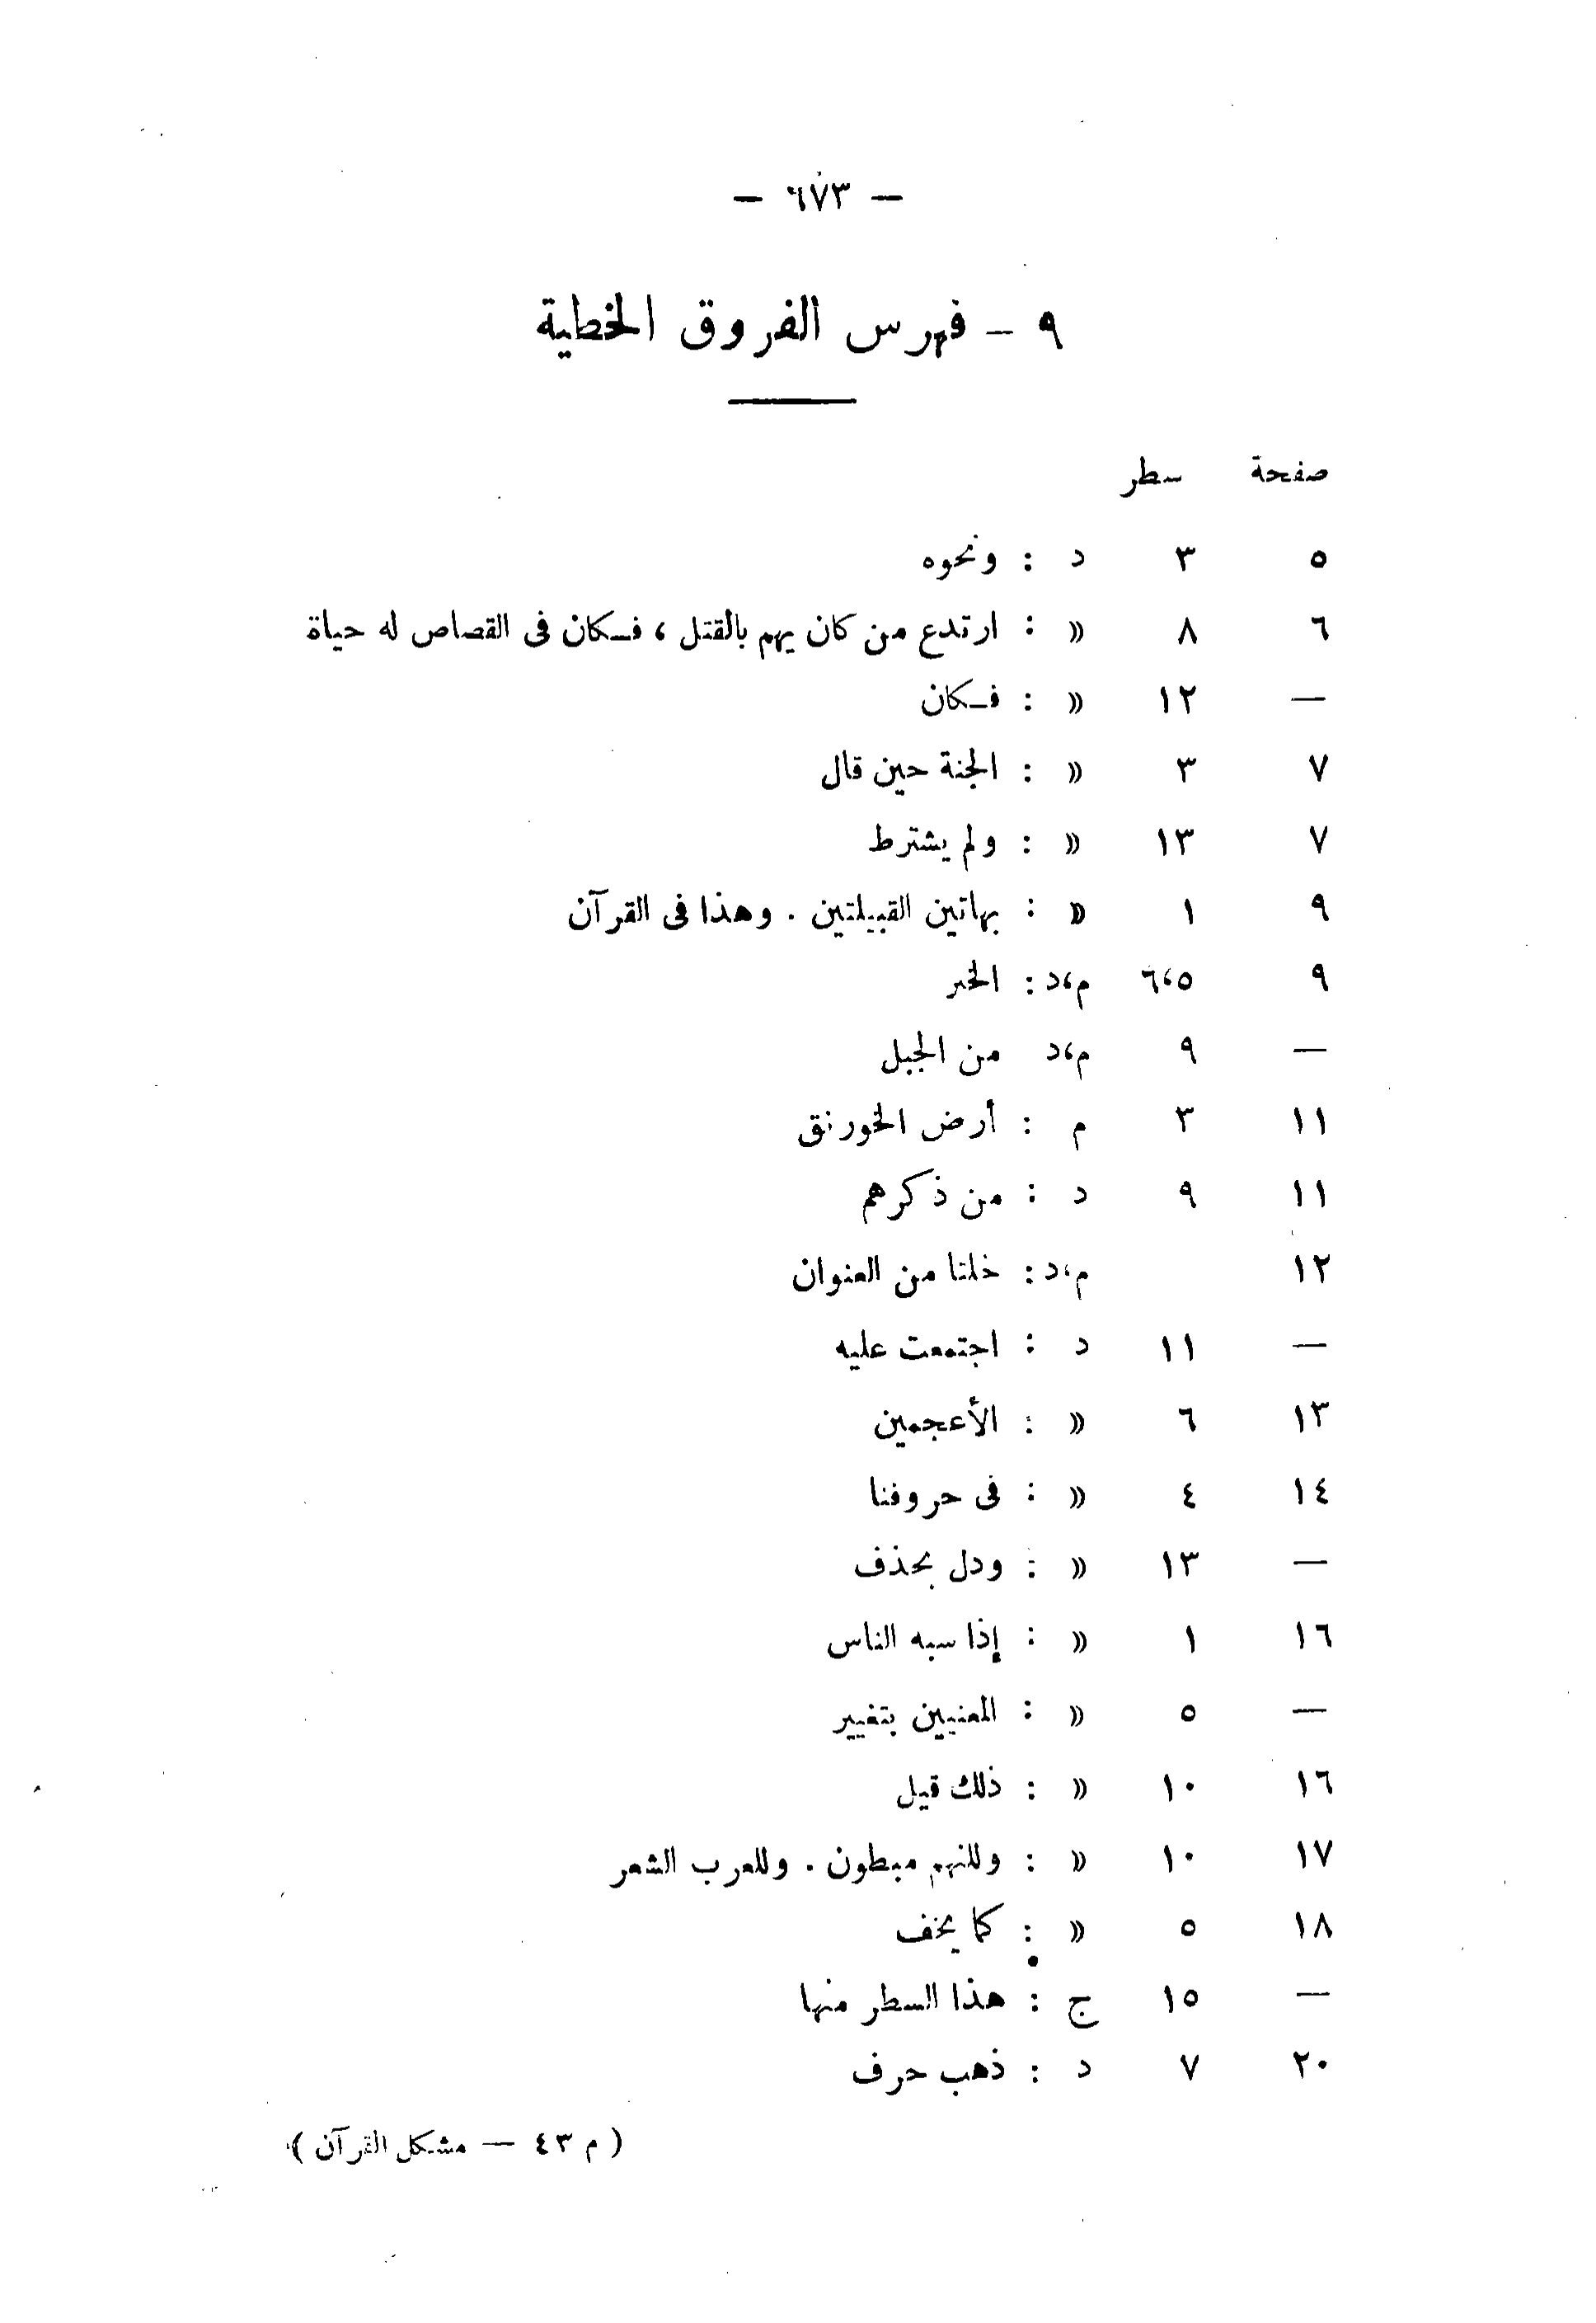 — ٦٧٣ —
٩ – فهرس الفروق الخطية
صفحة سطر
٥ ٣ د : ونحوه
٦ ٨ « : ارتدع من كان يهم بالقتل ، فـكان فى القصاص له حياة
— ١٢ « : فـكان
٧ ٣ « : الجنة حين قال
٧ ١٣ « : ولم يشترط
٩ ١ « : بهاتين القبيلتين . وهذا فى القرآن
٩ ٥،٦ م،د : الخبر
— ٩ م،د من الجبل
١١ ٣ م : أرض الخورنق
١١ ٩ د : من ذكرهم
١٢ م،د : خلتا من العنوان
— ١١ د : اجتمعت عليه
١٣ ٦ « : الأعجمين
١٤ ٤ « : فى حروفنا
— ١٣ « : ودل بحذف
١٦ ١ « : إذا سبه الناس
— ٥ « : المعنيين بتغيير
١٦ ١٠ « : ذلك قيل
١٧ ١٠ « : وللنهم مبطون . وللعرب الشعر
١٨ ٥ « : كما يخف
— ١٥ ج : هذا السطر منها
٢٠ ٧ د : ذهب حرف
( م ٤٣ — مشكل القرآن )